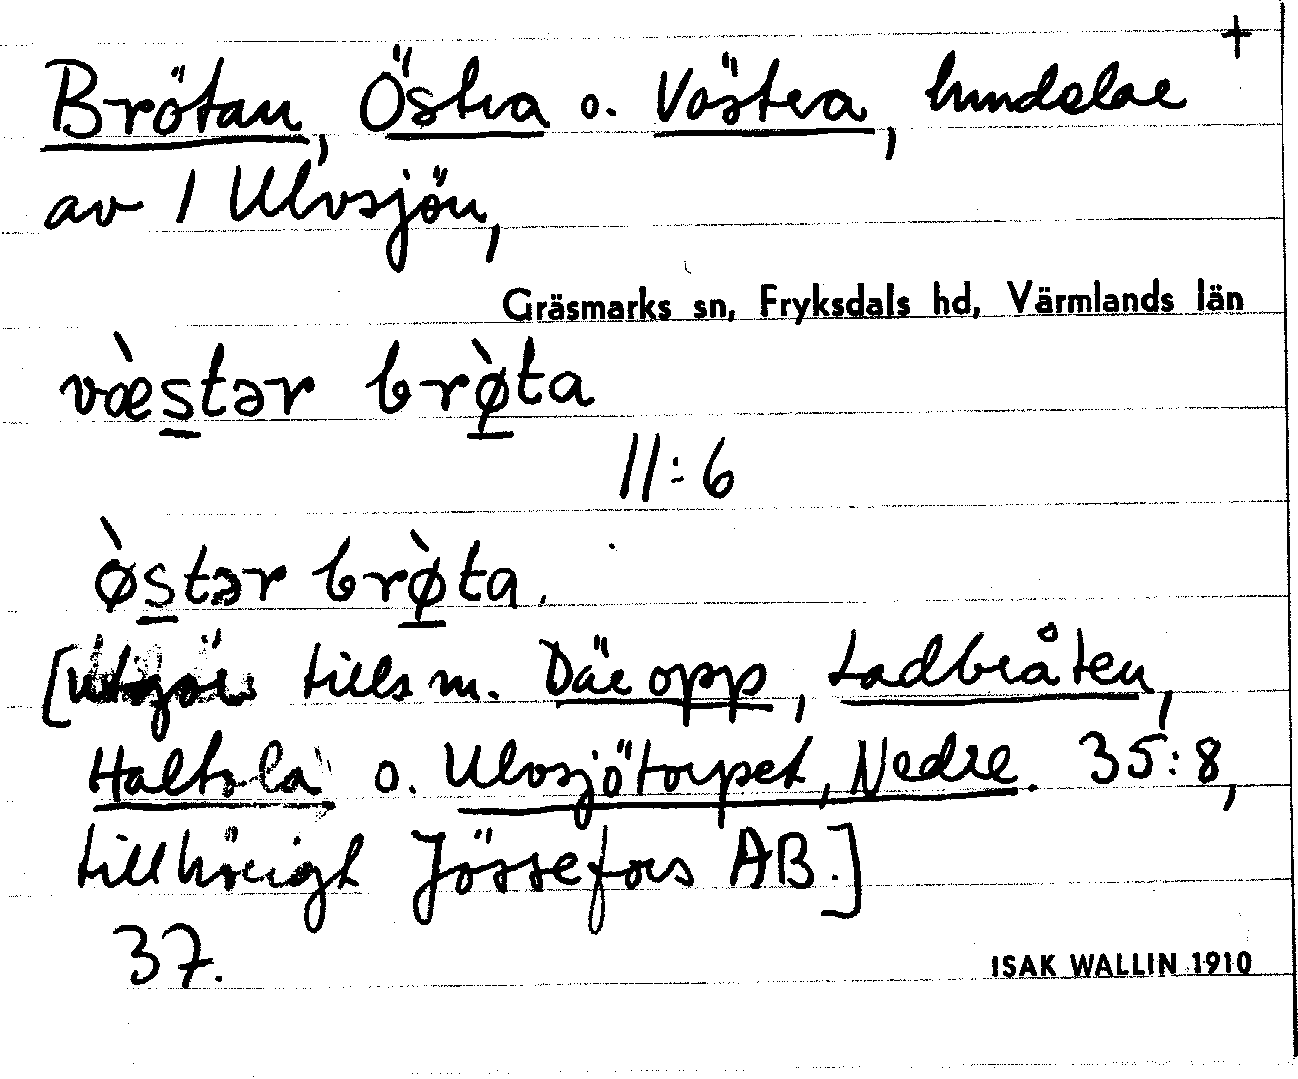 +
Brötan, Östra o. Västra, hmdelar
av 1 Ulvsjön,
Gräsmarks sn, Fryksdals hd, Värmlands län
væ̀stər brø̀ta
11:6
ø̀stər brø̀ta.
[utgör tills m. Där opp, Ladbråten,
Haltsla o. Ulvsjötorpet, Nedre. 35:8,
tillhörigt Jössefors AB.]
37.
ISAK WALLIN 1910